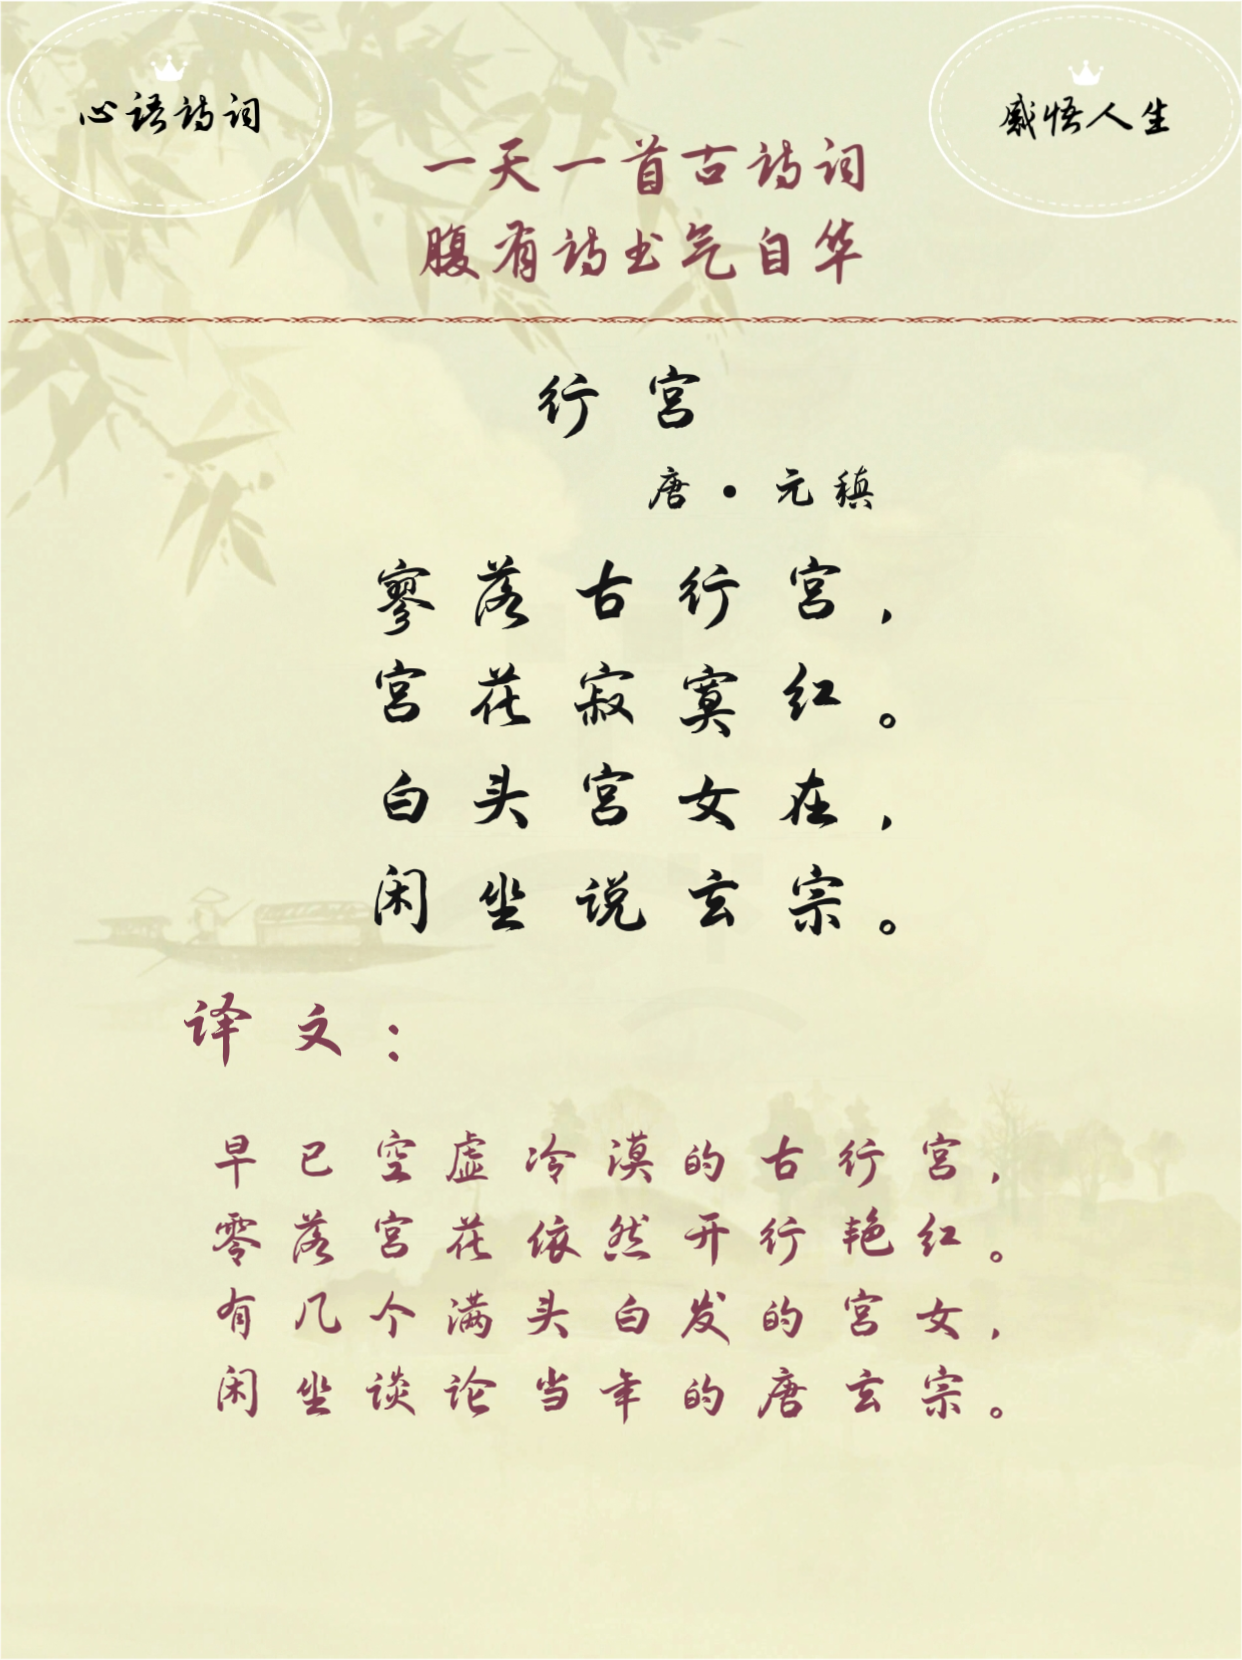 心语诗词
感悟人生
一天一首古诗词
腹有诗书气自华
行宫
唐·元稹
寥落古行宫，
宫花寂寞红。
白头宫女在，
闲坐说玄宗。
译文：
早已空虚冷漠的古行宫，
零落宫花依然开行艳红。
有几个满头白发的宫女，
闲坐谈论当年的唐玄宗。